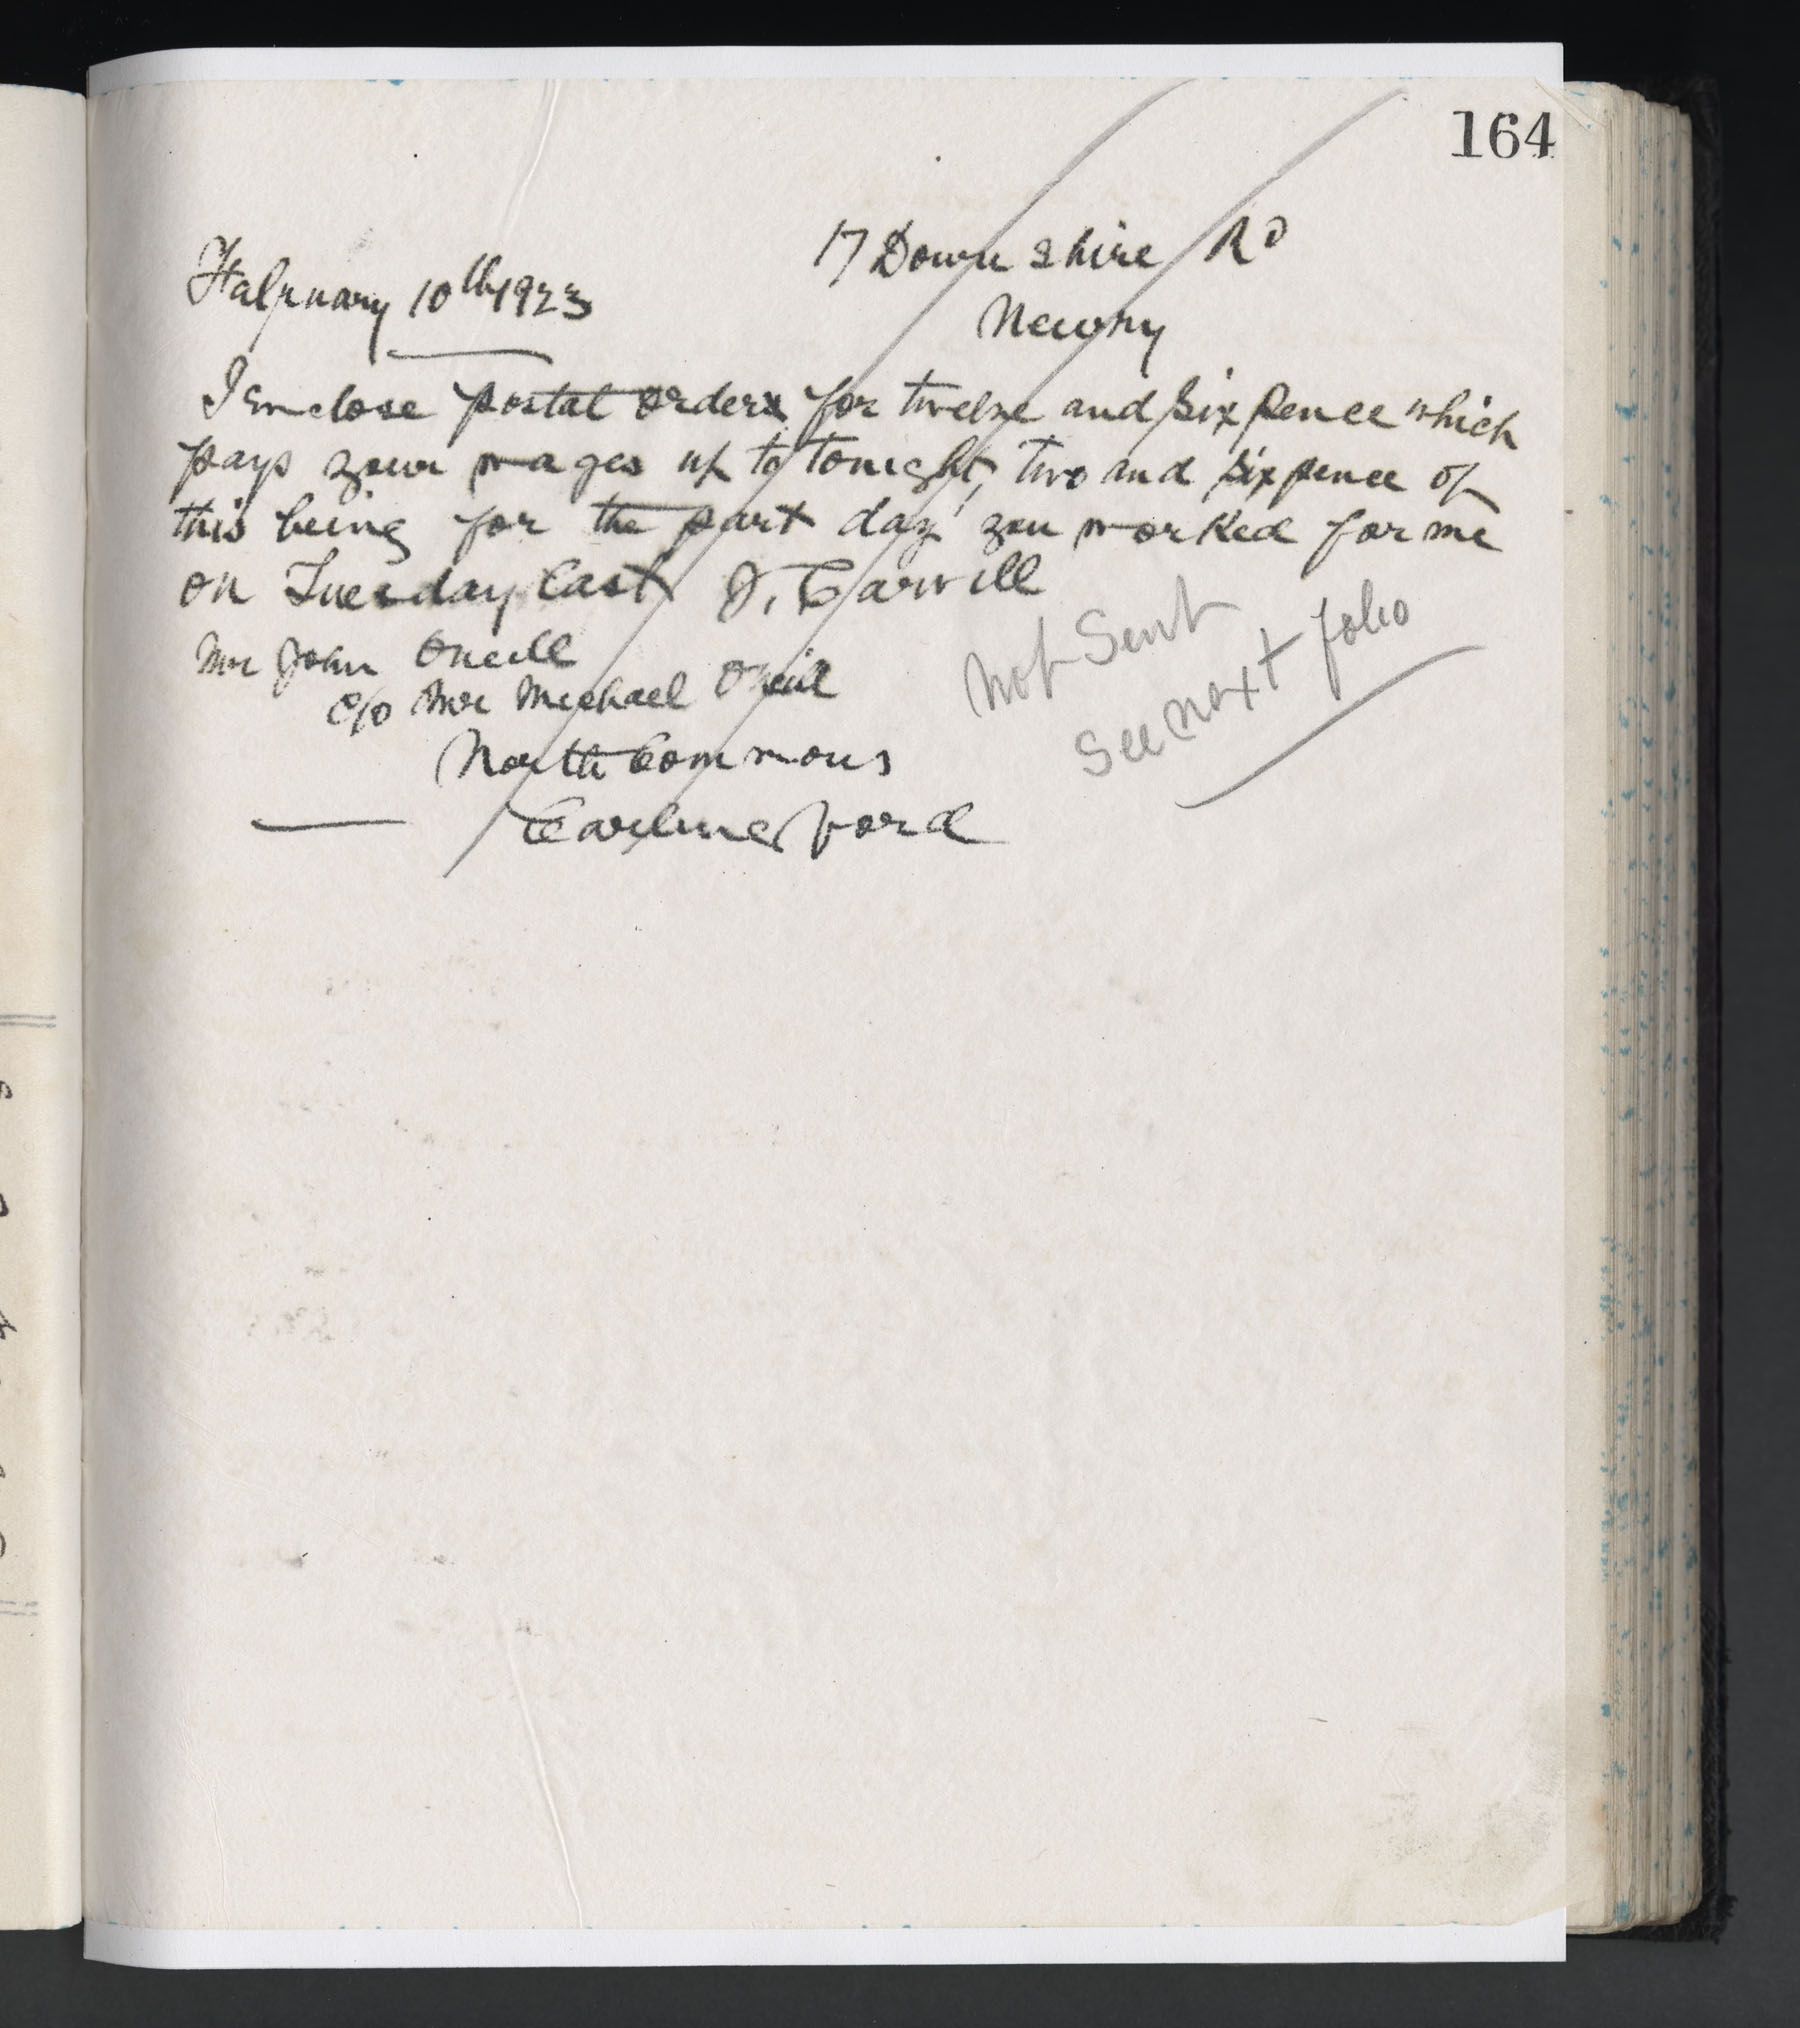 164
17 Downshire Rd
February 10th 1923
Newry
I Enclose postal orders for twelve and six pence which
pays your wages up to tonight, two and sixpence of
this being for the part day you worked for me
on Tuesday last J. Carvill
Mr John Oneill
c/o Mr Michael Oneill
North Commons
Carlingford
Not Sent
See next folio